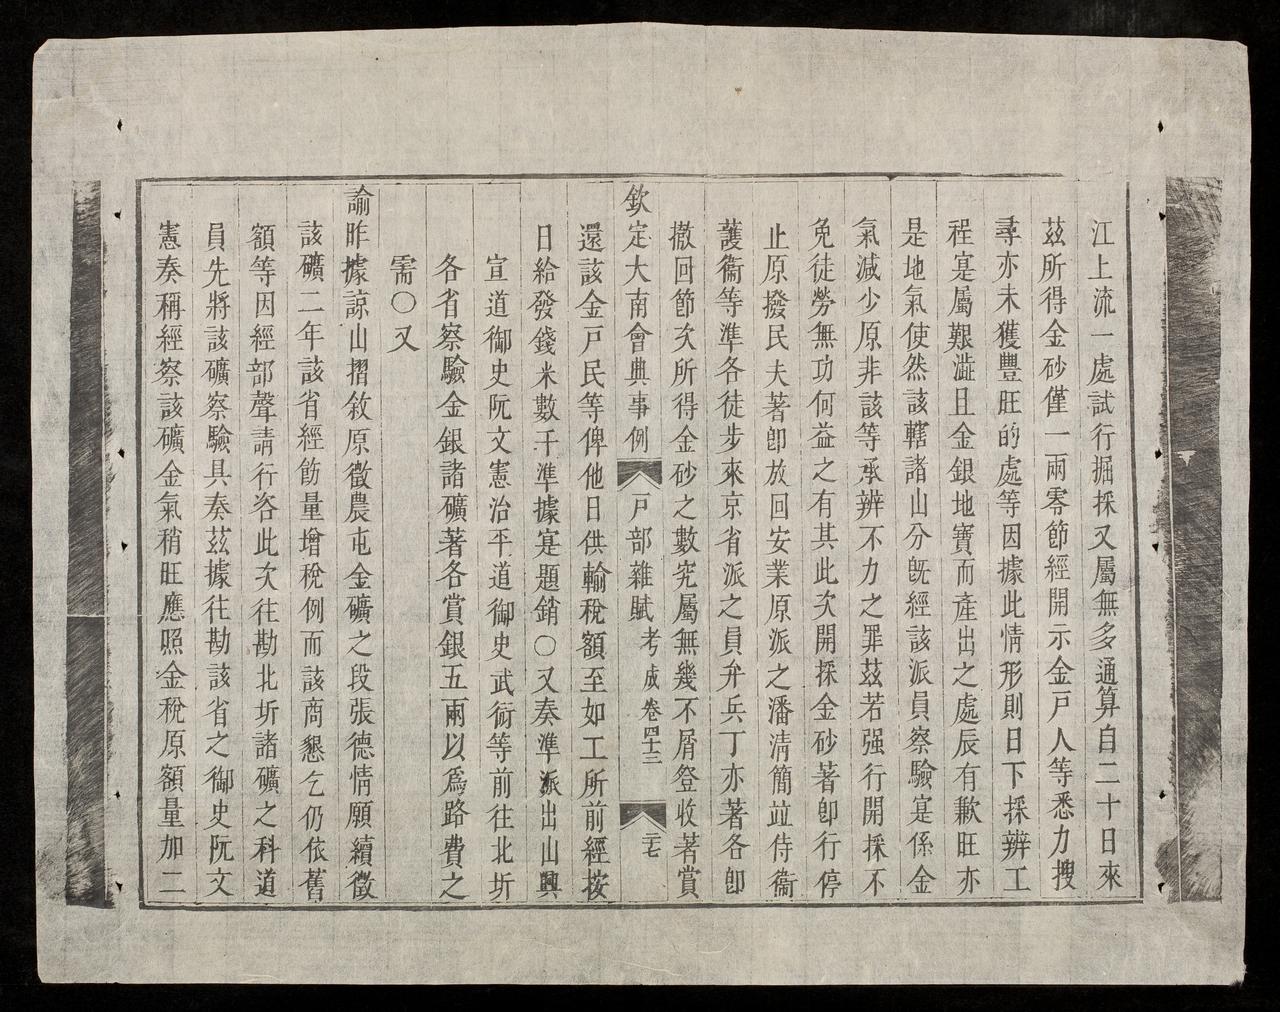 江上流一處試行掘採又屬無多通算自二十日來
茲所得金砂僅一兩零節經開示金戸人等悉力搜
尋亦未獲豐旺的處等因據此情形則日下採辨工
程寔屬艱澁且金銀地寶而產出之處辰有歉旺亦
是地氣使然該轄諸山分旣經該派員察驗寔係金
氣減少原非該等承辨不力之罪茲若强行開採不
免徒勞無功何益之有其此次開採金砂著卽行停
止原撥民夫著卽放回安業原派之潘淸簡竝侍衞
護衞等準各徒步來京省派之員弁兵丁亦著各卽
撤回節次所得金砂之數究屬無幾不屑登收著賞
欽定大南會典事例 戸部雜賦 考成 卷四十三 二七
還該金戸民等俾他日供輸稅額至如工所前經按
日給發錢米數干準據寔題銷〇又奏準派出山興
宣道御史阮文憲治平道御史武衍等前往北圻
各省察驗金銀諸礦著各賞銀五兩以爲路費之
需〇又
諭昨據諒山摺敘原徵農屯金礦之段張德情願續徵
該礦二年該省經飭量增稅例而該商懇乞仍依舊
額等因經部聲請行咨此次往勘北圻諸礦之科道
員先將該礦察驗具奏茲據往勘該省之御史阮文
憲奏稱經察該礦金氣稍旺應照金稅原額量加二